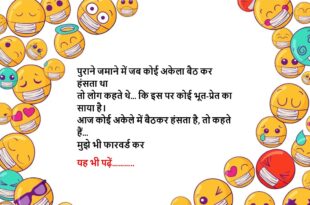 पुराने जमाने में जब कोई अकेला बैठ कर
हंसता था
तो लोग कहते थे... कि इस पर कोई भूत-प्रेत का
साया है।
आज कोई अकेले में बैठकर हंसता है, तो कहते
हैं...
मुझे भी फारवर्ड कर
यह भी पढ़ें...........